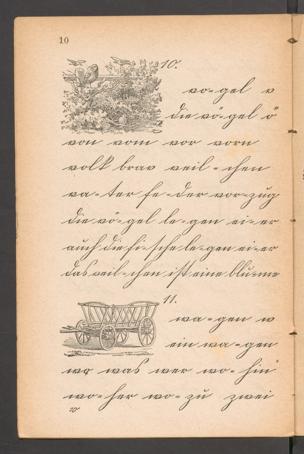 10
10.
vo-gel v
die vö-gel ö
von vom vor vorn
volk brav veil-chen
va-ter fe-der vor-zug
die vö-gel le-gen ei-er
auch die fi-sche le-gen ei-er
das veil-chen ist eine blu-me
11.
wa-gen w
ein wa-gen
wo was wer wo-hin
wo-her wo-zu zwei